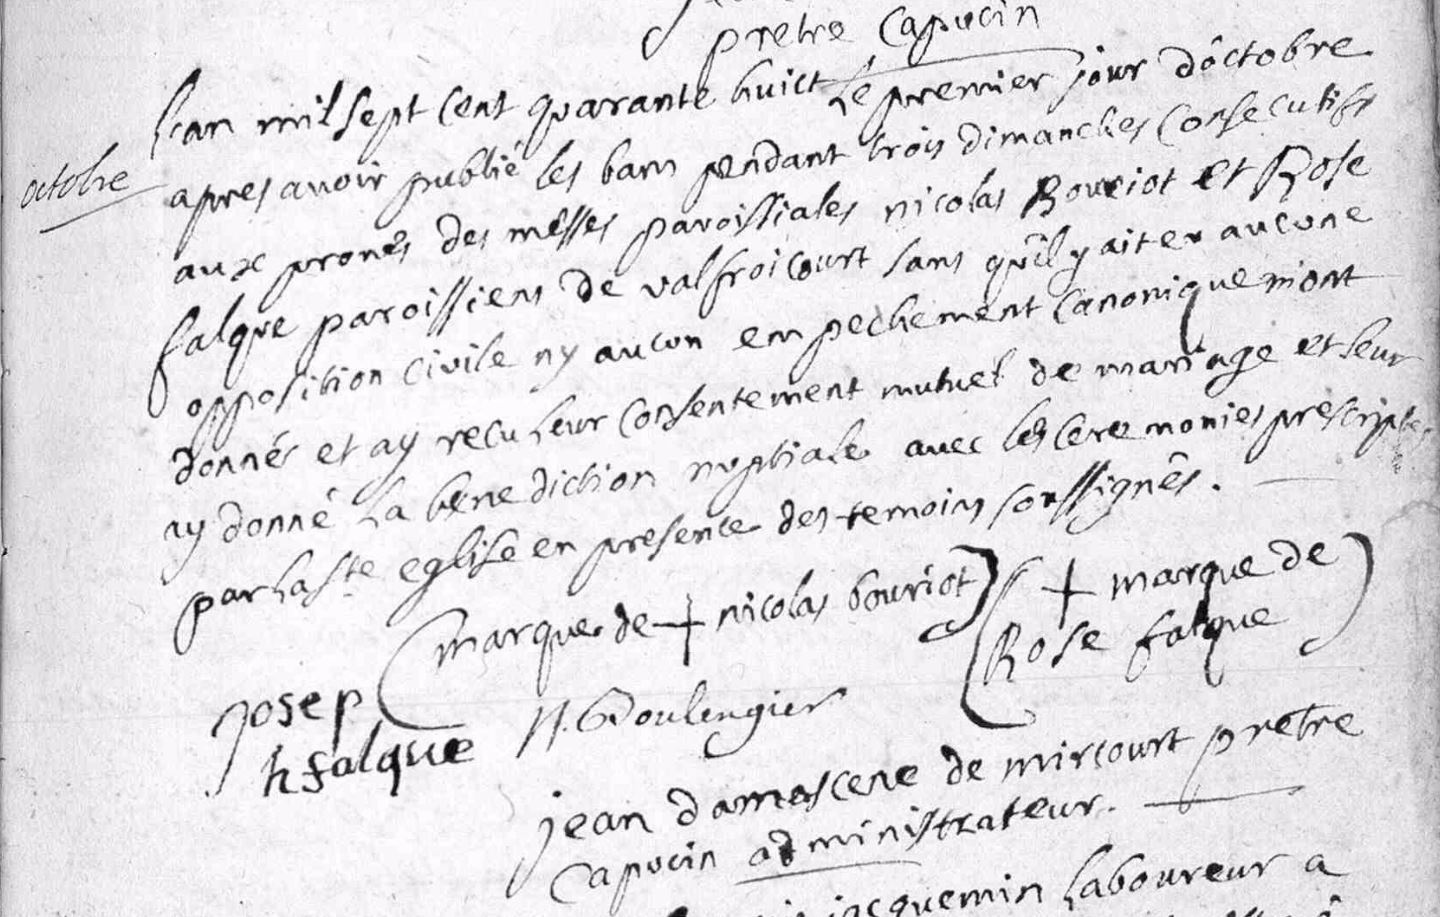 pretre Capucin
Lan mil sept cent quarante huict Le premier jour d'octobre
octobre
apres avoir publié les bans pendant trois dimanches Consecutifs
aux pronês des mêsses paroissiales nicolas Bouriot et Rose
falque paroissiens de valfroicourt sans qu'il y ait eu aucune
opposition civile ny aucun empechement canonique m'ont
donnés et ay recu leur consentement mutuel de mariage et leur
ay donné La benediction nuptiale avec les ceremonies prescriptes
par La Ste eglise en presence des temoins soussignês.
marque de + nicolas bouriot + marque de
Rose falque
Josep
h falque
N. Boulengier
jean damascene de mircourt pretre
Capucin administrateur.
jacquemin Laboureur a